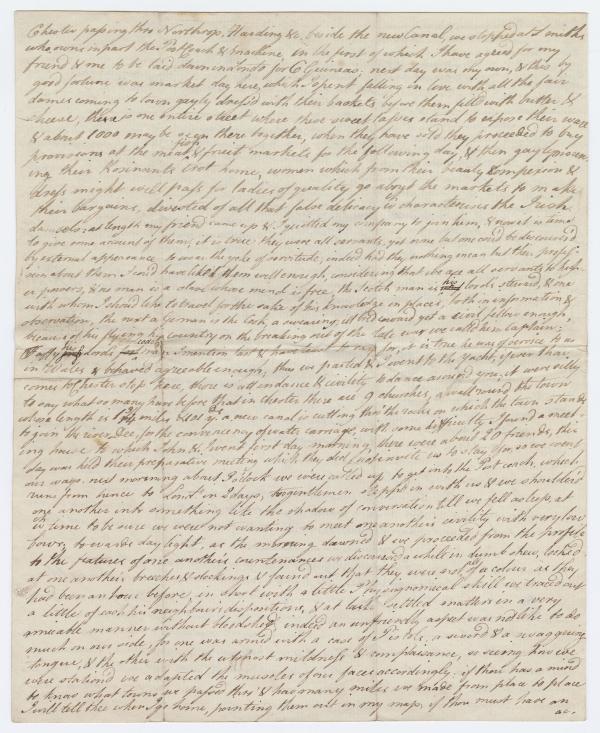 Chester passing thro Northrop, Harding &c. beside the new Canal, we stopped at Smiths
who owns in part the Post Coach & machine, in the front of which I have agreed for my
friend & me to be laid down in London for 6 Guineas; next day was my own, & this by
good fortune was market day here, which I spent falling in love with all the fair
dames coming to town gayly dress'd with their baskets before them fill'd with butter &
cheese, there is one entire street where these sweet lasses stand to expose their ware
& about 1000 may be seen there together, when they have sold they proceeded to buy
provisions at the meat & fruit markets for the following day, & then gayly mount
ing their Rosinants trot home, women which from their beauty complexion &
dress might well pass for ladies of quality go about the markets to make
their bargains, divested of all that false delicacy that characterises the Irish
damsels; at length my friend came up & I quitted my company to join them, & now it is time
to give some account of them, it is true, they were all servants, yet none but one could be discovered
by external appearance to wear the yoke of servitude, indeed had they nothing mean but their profes-
sion about them I could have liked them well enough, considering that we are all servants to high-
er powers, & no man is a slave whose mind is free, the Scotch man is his lords steward, & one
with whom I should like to travel for the sake of his knowledge in places, both in information &
observation, the next a German is the Cook, a swearing, ill bred coward yet a civil fellow enough,
because of his flying his country on the breaking out of the late war we call him Captain;
lords man I mention last & have least to say for, it is true he was of service to us
in Wales & behaved agreeable enough, thus we parted & I went to the Yacht, if ever thou
comes to Chester stop here, there is attendance & civility to dance around you. it were silly
to say what so many have before that in chester there are 9 churches, a wall round the town
whose length is 1 3/4 miles & 103 yds a new canal is cutting thro' the rocks on which the town stands
to join the river Dee, for the conveniency of water carriage, with some difficulty I found a meet-
ing house to which John & I went first day morning, there were about 20 friends, this
day was held their preparative meeting which they did not invite us to stay for, so we went
our ways. next morning about 3 o'clock we were called up to get into the Post coach, which
runs from hence to Lond. in 2 days, two gentlemen stept in with us & we shoulder'd
one another into something like the shadow of conversation till we fell asleep at
in time to be sure we were not wanting to meet one another's civility with very low
bows; towards day light, as the morning dawned & we proceeded from the profile
to the features of one another's countenances we discoursed a while in dumb shew, looked
at one another's breeches & stockings & found out that they were not of a colour as they
had been an hour before, in short with a little Physiognomical skill we traced out
a little of each his neighbours dispositions, & at last settled matters in a very
amicable manner without bloodshed, indeed an unfriendly aspect was not like to do
much on our side, for one was armed with a case of Pistols, a sword & a swaggering
tongue, & the other with the utmost mildness & complaisance, so seeing how we
were stationed we adapted the muscles of our faces accordingly. if thou has a mind
to know what towns we passed thro' & how many miles we made from place to place
I will tell thee when I go home, pointing them out in my map, if thou must have an
ac-